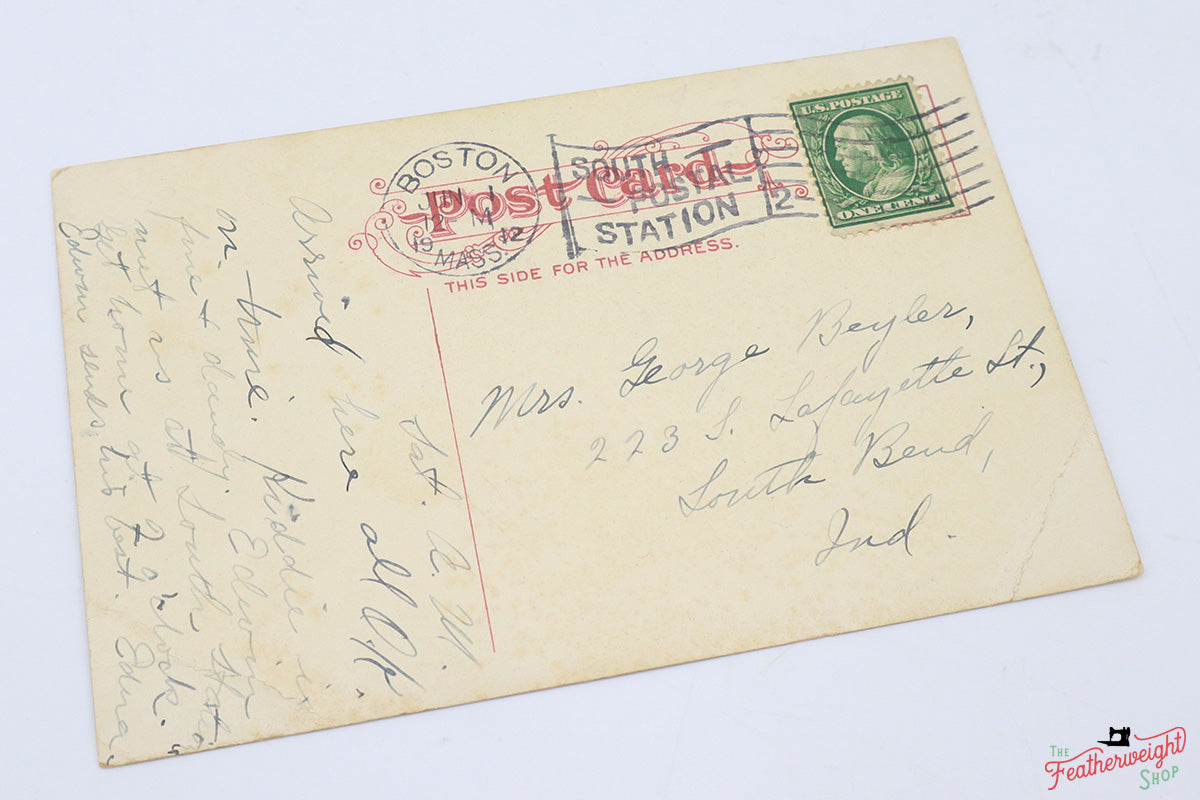 Post Card
THIS SIDE FOR THE ADDRESS.
BOSTON
JUN 1
12 M
1912
MASS.
SOUTH
POSTAL
STATION
2
U.S. POSTAGE
ONE CENT
Sat. A. M.
Arrived here all O.K.
on time. Kiddie is
fine & dandy. Edwin
met us at South Station
get home at 2 o'clock.
Edwin sends his best. Edna.
Mrs. George Beyler,
223 S. Lafayette St.,
South Bend,
Ind.
THE
Featherweight
SHOP